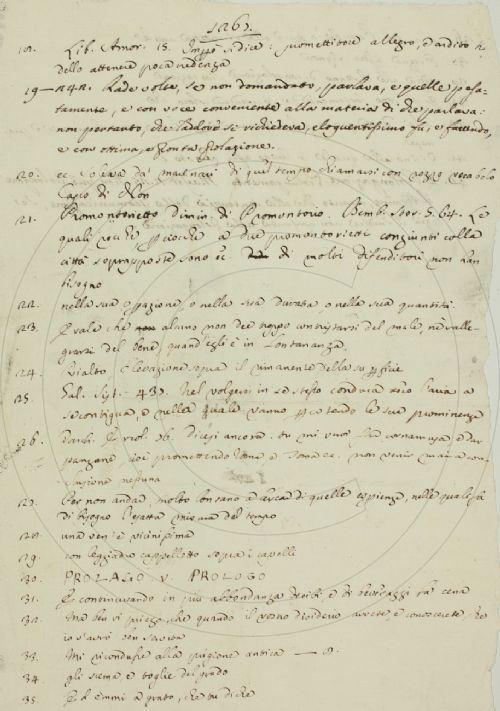 1261.
18. Lib. Amor. 15. promettitore allegro, d'ardito
dello attenere poca credenza
19 — 242. Rade volte, se non domandato, parlava, e quelle posa-
tamente, e con voce conveniente alla materia di che parlava:
non pertanto, che laddove si richiedeva, eloquentissimo fu, e facondo,
e con ottima, e pronta prolazione.
20. ec. da' marinari di quel tempo chiamarsi con rozzo vocabolo
Capo di Non
21. Promontorietto dimin. di Promontorio. Bemb. Stor. 5. 64. Le
quali rocche perciocchè a due promontorietti congiunti colla
città soprapposte sono di molti difenditori non han
bisogno
22. nella sua o nella sua durata o nella sua quantità.
23. E vale che alcuno non dee troppo contristarsi del male, nè ralle-
grarsi del bene, quand'egli è in lontananza.
24. Rialto, Elevazione sopra il rimanente della superficie
25. Gal. Sist. 43. Nel volgersi in se stesso conduca l'aria a
se contigua, e nella quale vanno le sue prominenze
26. dicesi ancora. tu mi vuoi
panzane, cioè promettendo Roma e Toma ec. non venir mai a con-
clusione nessuna
27. Per non andar molto lontano a cercar di quelle esperienze, nelle quali fa
di bisogno l'esatta misura del tempo
28. una ven' è vicinissima
29. con leggiadro cappelletto sopra i capelli
30. PROLAGO v. PROLOGO
31. E continuando in più abbondanza de' cibi, e de' beveraggi la cena
32. Ma ben vi priego, che quando il vedrete, e conoscerete
33. Mi ricondusse alla prigione antica — 9.
34. gli scema, e toglie del grado
35. Ed emmi a grato, che tu diche